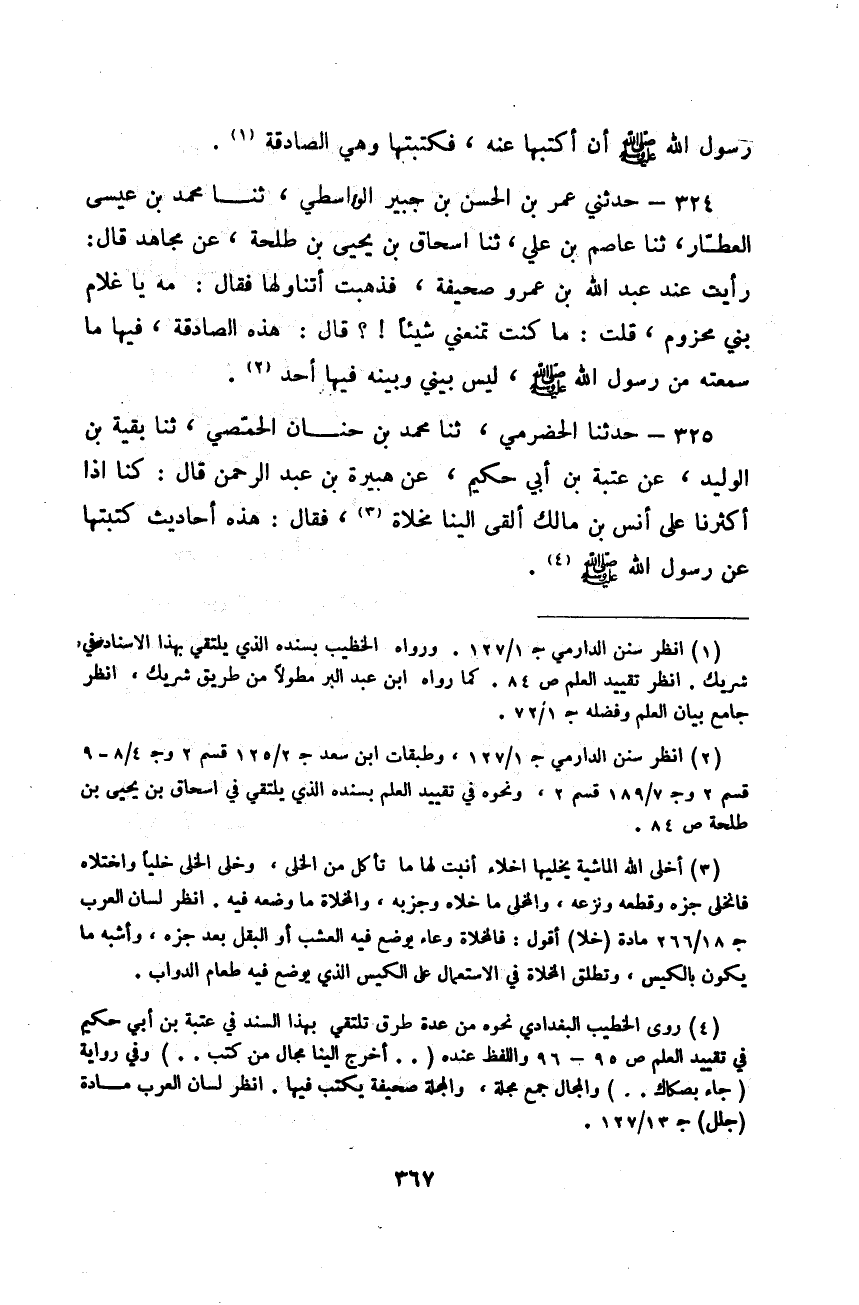 رسول الله ﷺ أن أكتبها عنه ، فكتبتها وهي الصادقة (١) .
٣٢٤ – حدثني عمر بن الحسن بن جبير الواسطي ، ثنــا محمد بن عيسى
العطـّار، ثنا عاصم بن علي ، ثنا اسحاق بن يحيى بن طلحة ، عن مجاهد قال:
رأيت عند عبد الله بن عمرو صحيفة ، فذهبت أتناولها فقال : مه يا غلام
بني مخزوم ، قلت : ما كنت تمنعني شيئاً ! ؟ قال : هذه الصادقة ، فيها ما
سمعته من رسول الله ﷺ ، ليس بيني وبينه فيها أحد (٢) .
٣٢٥ – حدثنا الحضرمي ، ثنا محمد بن حنــان الحمّصي ، ثنا بقية بن
الوليد ، عن عتبة بن أبي حكيم ، عن هبيرة بن عبد الرحمن قال : كنا اذا
أكثرنا على أنس بن مالك ألقى الينا مخلاة (٣) ، فقال : هذه أحاديث كتبتها
عن رسول الله ﷺ (٤) .
(١) انظر سنن الدارمي جـ ١٢٧/١ . ورواه الخطيب بسنده الذي يلتقي بهذا الاسناد في
شريك . انظر تقييد العلم ص ٨٤ . كما رواه ابن عبد البر مطولاً من طريق شريك ، انظر
جامع بيان العلم وفضله جـ ٧٢/١ .
(٢) انظر سنن الدارمي جـ ١٢٧/١ ، وطبقات ابن سعد جـ ١٢٥/٢ قسم ٢ وجـ ٨/٤ – ٩
قسم ٢ وجـ ١٨٩/٧ قسم ٢ ، ونحوه في تقييد العلم بسنده الذي يلتقي في اسحاق بن يحيى بن
طلحة ص ٨٤ .
(٣) أخلى الله الماشية يخليها اخلاء أنبت لها ما تأكل من الخلى ، وخلى الخلى خلياً واختلاه
فانخلى جزه وقطعه ونزعه ، والمخلى ما خلاه وجزبه ، والمخلاة ما وضعه فيه . انظر لسان العرب
جـ ٢٦٦/١٨ مادة (خلا) أقول : فالمخلاة وعاء يوضع فيه العشب أو البقل بعد جزه ، وأشبه ما
يكون بالكيس ، وتطلق المخلاة في الاستعمال على الكيس الذي يوضع فيه طعام الدواب .
(٤) روى الخطيب البغدادي نحوه من عدة طرق تلتقي بهذا السند في عتبة بن أبي حكيم
في تقييد العلم ص ٩٥ – ٩٦ واللفظ عنده ( . . أخرج الينا مجال من كتب . . ) وفي رواية
( جاء بصكاك . . ) والمجال جمع مجلة ، والمجلة صحيفة يكتب فيها . انظر لسان العرب مــادة
(جلل) جـ ١٢٧/١٣ .
٣٦٧